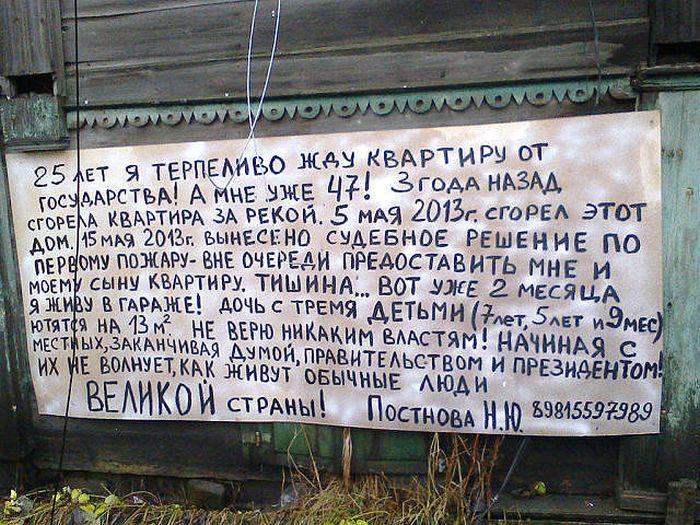 25 ЛЕТ Я ТЕРПЕЛИВО ЖДУ КВАРТИРУ ОТ
ГОСУДАРСТВА! А МНЕ УЖЕ 47! 3 ГОДА НАЗАД
СГОРЕЛА КВАРТИРА ЗА РЕКОЙ. 5 МАЯ 2013г. СГОРЕЛ ЭТОТ
ДОМ. 15 МАЯ 2013г. ВЫНЕСЕНО СУДЕБНОЕ РЕШЕНИЕ ПО
ПЕРВОМУ ПОЖАРУ - ВНЕ ОЧЕРЕДИ ПРЕДОСТАВИТЬ МНЕ И
МОЕМУ СЫНУ КВАРТИРУ. ТИШИНА... ВОТ УЖЕ 2 МЕСЯЦА
Я ЖИВУ В ГАРАЖЕ! ДОЧЬ С ТРЕМЯ ДЕТЬМИ (7 лет, 5 ЛЕТ и 9 МЕС)
ЮТЯТСЯ НА 13 м² НЕ ВЕРЮ НИКАКИМ ВЛАСТЯМ! НАЧИНАЯ С
МЕСТНЫХ, ЗАКАНЧИВАЯ ДУМОЙ, ПРАВИТЕЛЬСТВОМ И ПРЕЗИДЕНТОМ!
ИХ НЕ ВОЛНУЕТ, КАК ЖИВУТ ОБЫЧНЫЕ ЛЮДИ
ВЕЛИКОЙ СТРАНЫ! ПОСТНОВА Н.Ю. 89815597989